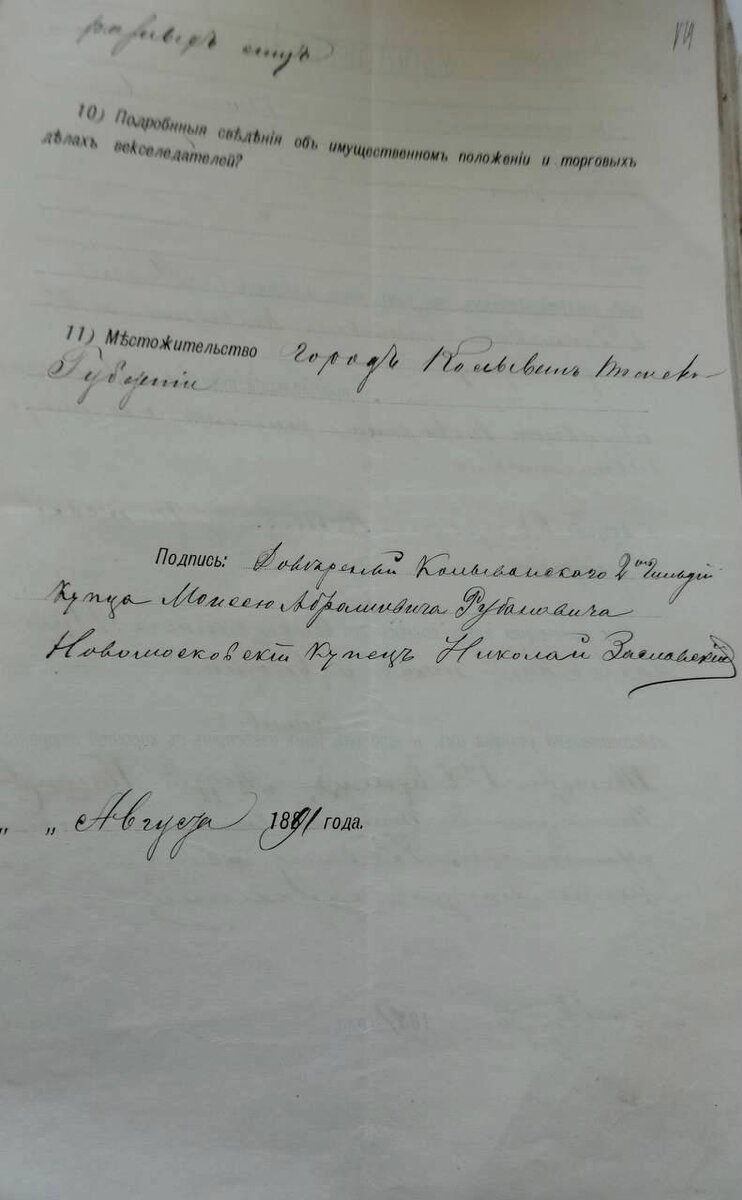 10) Подробнныя свѣдѣнія объ имущественномъ положеніи и торговыхъ
дѣлахъ векселедателей?
11) Мѣстожительство городъ Колывань Томско
Губерніи
Подпись: Довѣренный Колыванского 2ой Гильдіи
Купца Моисею Абрамовича Рубановича
Новомосковскій Купецъ Николай Заславскій
„ „ Августа 1891 года.